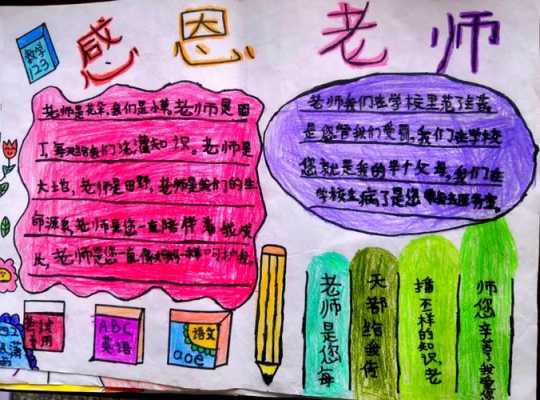 感恩老师
数学
123
老师是花朵,我们是小草,老师是园
工,每天给我们浇灌知识。老师是
大地,老师是田野,老师是我们的生
命源泉,老师是您一直陪伴着我成
长,老师是您一直像妈妈一样呵护着
老师我们在学校里惹了
是您管我们爱哥,我们在学校
您就是我的半个父母,我们在
学校生病了是您
老师是您每
天都给我们
播不一样的知识,老
师您辛苦了我爱您
考试
专用
ABC
英语
语文
aoe